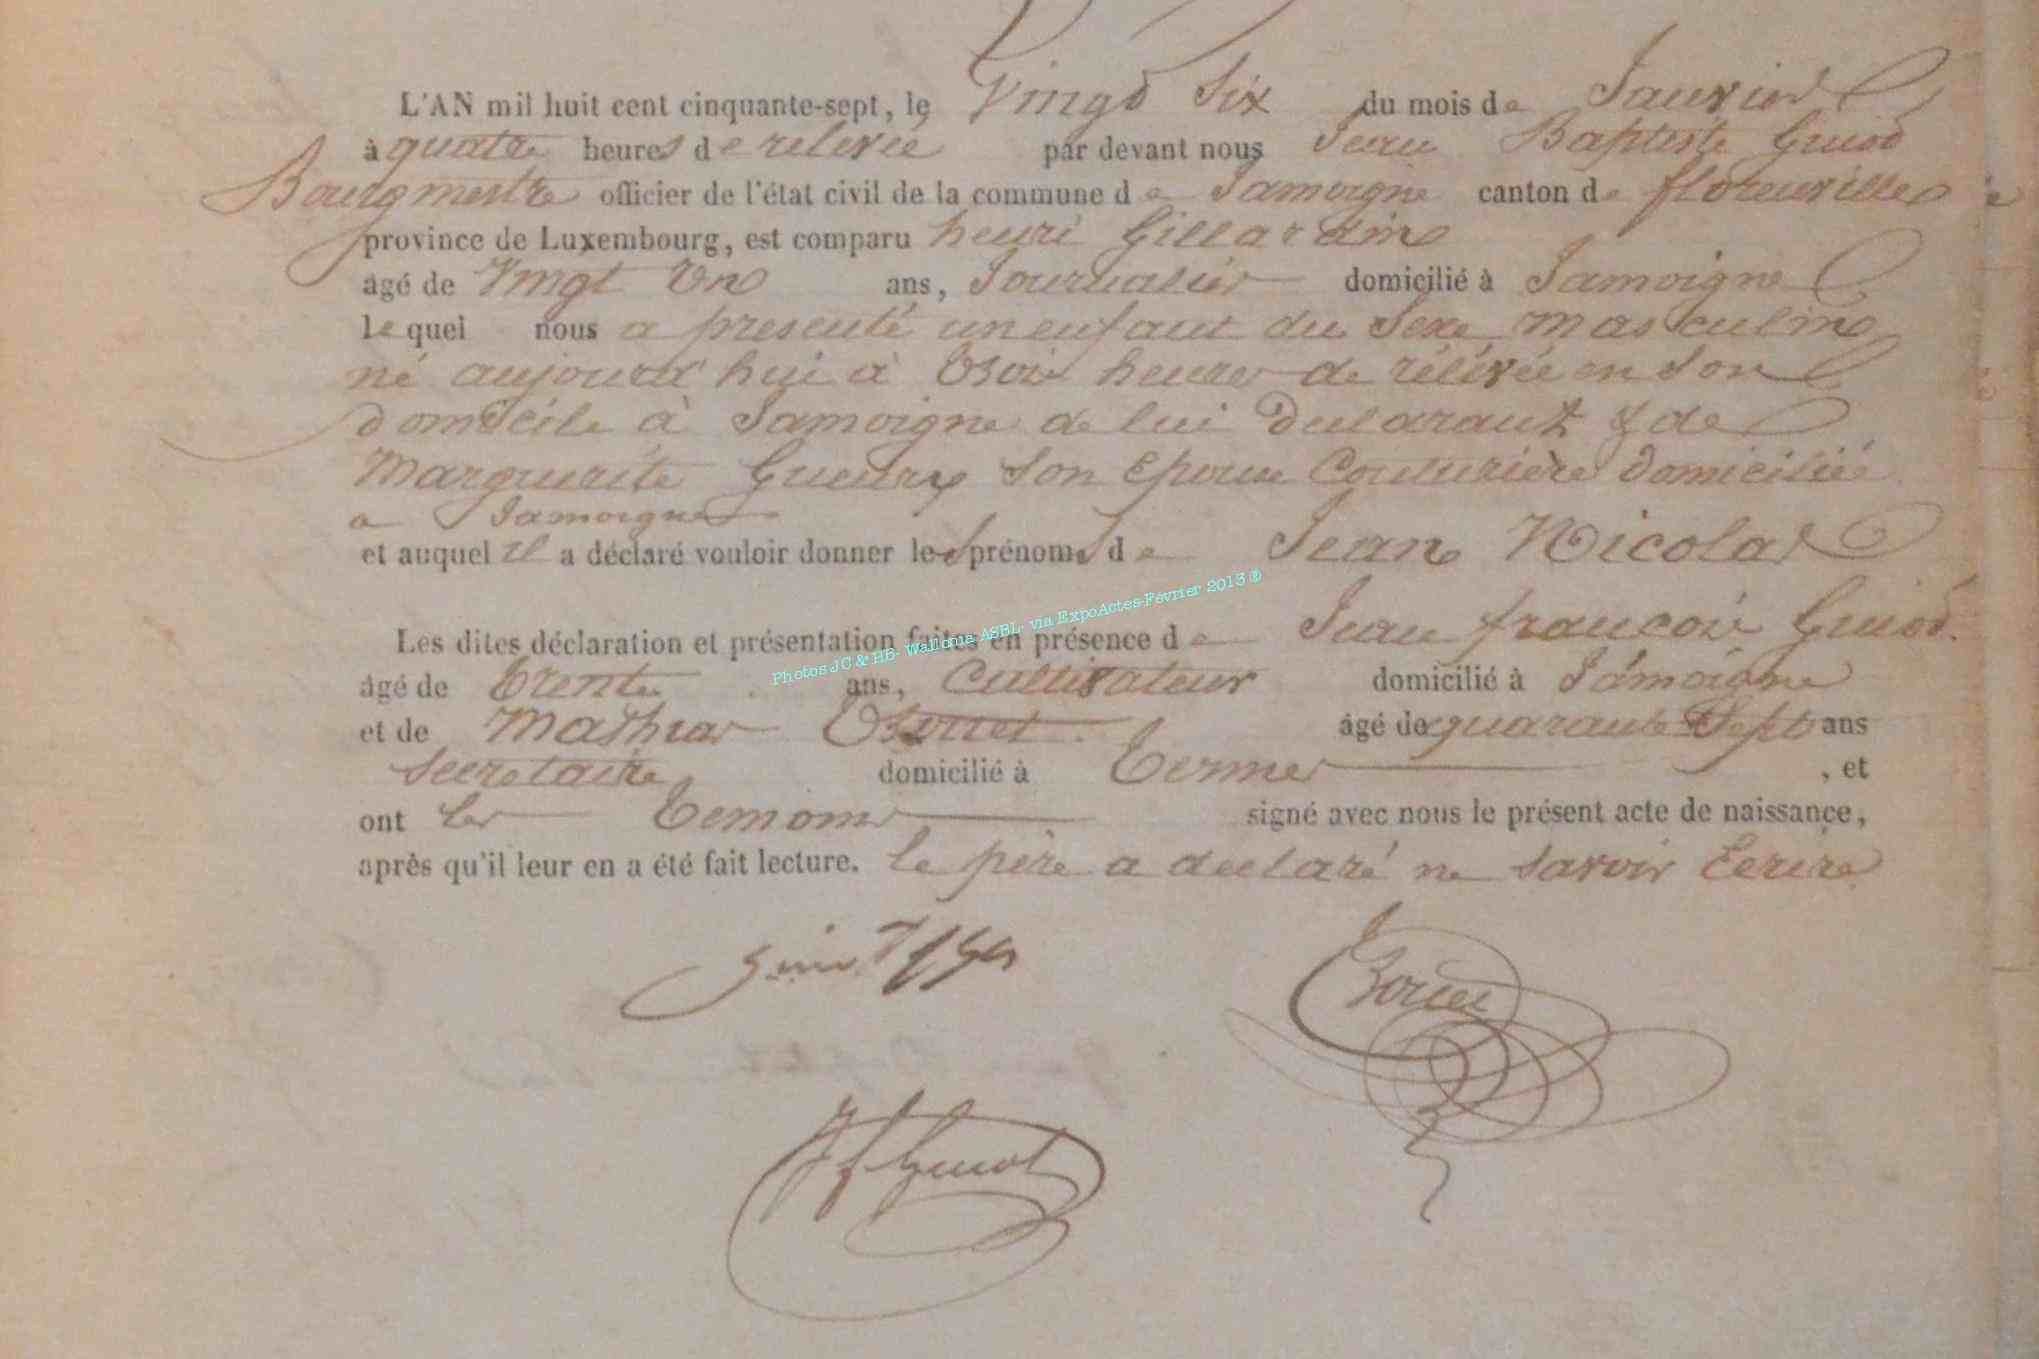 L'AN mil huit cent cinquante-sept, le Vingt Six du mois de Janvier
à quatre heures de relevée par devant nous Jean Baptiste Guiot
Bourgmestre officier de l'état civil de la commune de Jamoigne canton de florenville
province de Luxembourg, est comparu henri Gillardin
âgé de Vingt Un ans, Journalier domicilié à Jamoigne
lequel nous a presenté un enfant du Sexe masculin
né aujourd'hui à trois heures de rélévée en son
domicile à Jamoigne de lui Déclarant & de
Marguerite Gueury son Epouse Couturière domiciliée
a Jamoigne
et auquel il a déclaré vouloir donner les prénoms de Jean Nicolas
Les dites déclaration et présentation faites en présence de Jean françois Guiot
âgé de trente ans, Cultivateur domicilié à Jamoigne
et de Mathias âgé de quarante Sept ans
Secretaire domicilié à termes , et
ont les temoins signé avec nous le présent acte de naissance,
après qu'il leur en a été fait lecture. le père a declaré ne savoir Ecrire
Photos JC & HB- Wallonia ASBL- via ExpoActes-Février 2013 ®
Jf Guiot